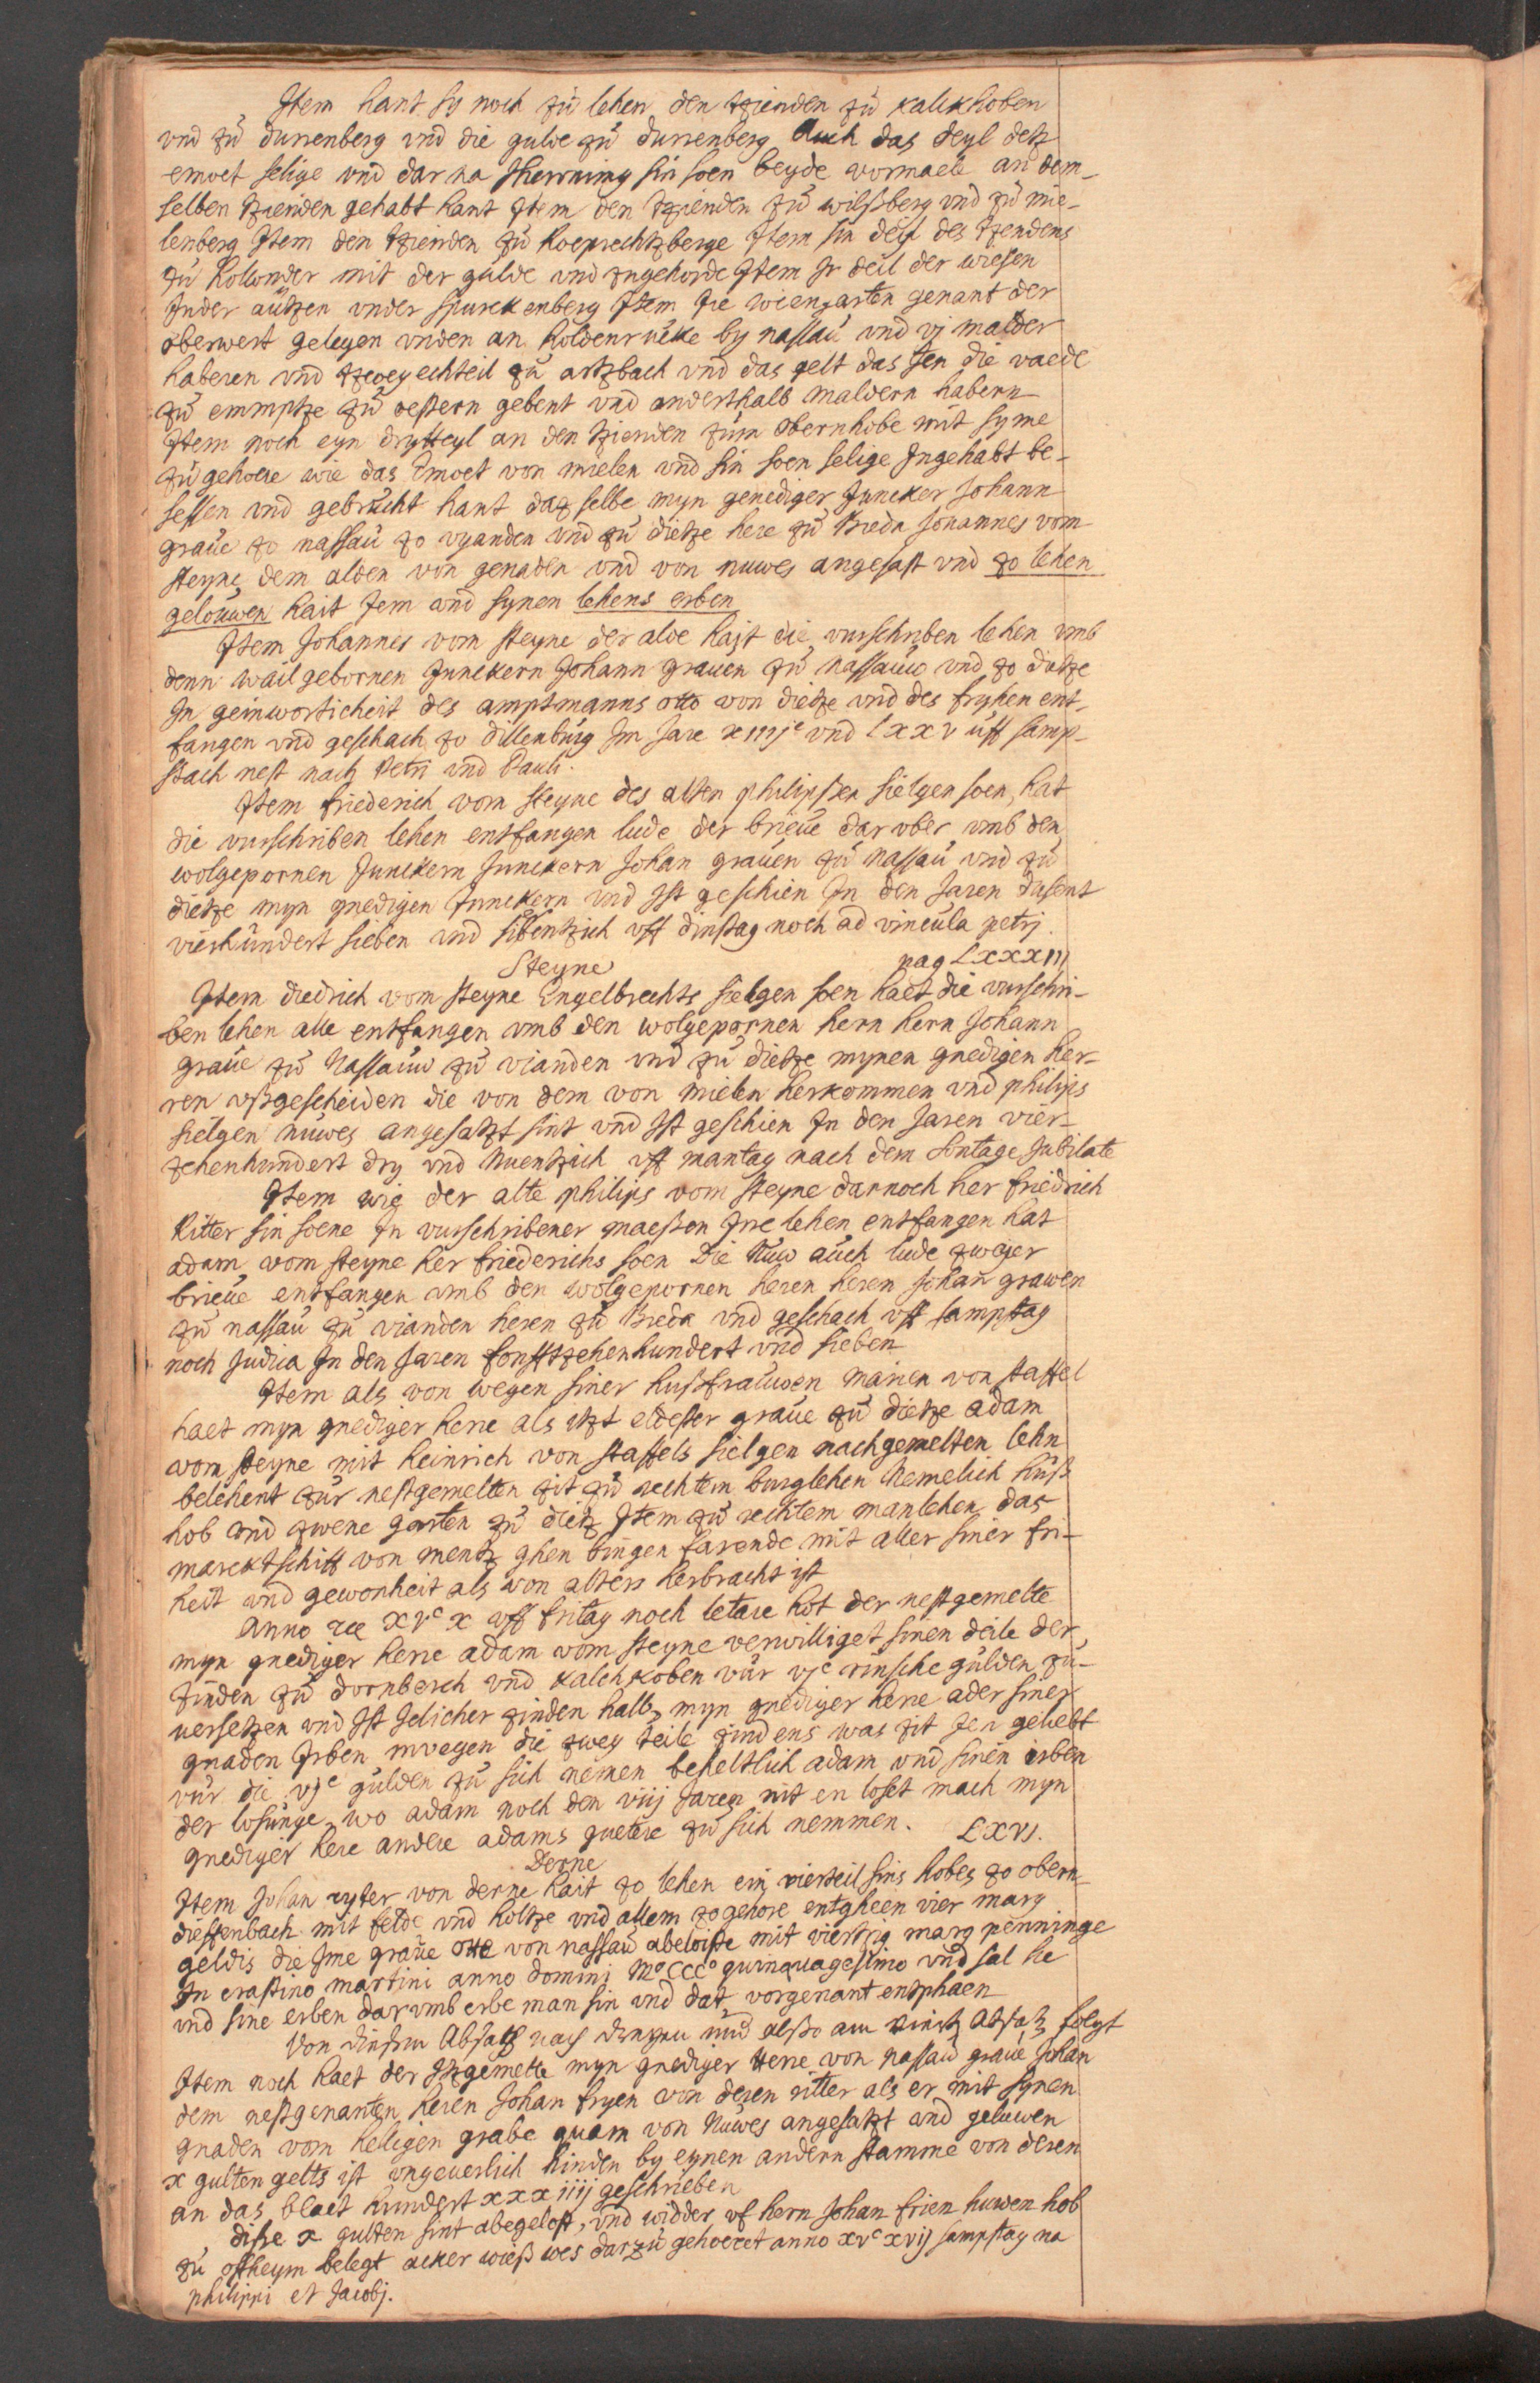 Item hant sy noch zu lehen den tzienden zu kalckhoben
vnd zu durrenberg vnd die gulde zu durrenberg Auch das deyl detz
emoet selige vnd dar na Therning sin soen beyde vormaels an dem-
selben tzienden gehabt hant Item den tzienden zu wilßberg vnd zu mie-
lenberg Item den tzienden zu Roeprechtzberge Item sin deil des tzendens
zu holonder mit der gulde vnd zugehorde Item Ir deil der wiesen
Inder autzen vnder spurckenberg Item die weengarten genant der
oberwert gelegen vnden an koldenrucke by nassau vnd vj malder
haberen vnd tzwey echteil zu artzbach vnd das gelt das Jen die vaede
zu emmptze zu oestern gebent vnd anderthalb maldern habern
Item noch eyn drytteyl an den tzienden zum obernhobe mit syme
zugehore wie das Emoet von mielen vnd sin soen selige Ingehabt be-
sessen vnd gebrucht hant daz selbe myn genediger Juncker Johann
graue zo nassau zo vyanden vnd zu dietze here zu Breda Johannes vom
steyne dem alden von genaden vnd von nuwes angesast vnd zo lehen
gelouwen hait Jem vnd synen lehens erben
Item Johannes vom steyne der alde hajt die vurschriben lehen vmb
denn wail gebornen Junckern Johann grauen zu Nassauw vnd zo dietze
In geinworticheit des amptmanns otto von dietze vnd des fryhen ent-
fangen vnd geschach zo dillenburg Im Jare xiiijc vnd lxxv uff samp-
stach nest nach Petri vnd Pauli.
Item friederich vom steyne des alten philipßen sielgen soen, hat
die vurschriben lehen entfangen lude der brieue dar vber vmb den
wolgepornen Junckern Junckern Johan grauen zu Nassau vnd zu
dietze myn gnedigen Junckern vnd Ist geschien In den Jaren dusent
vierhundert sieben vnd sibentzich vff dinstag noch ad vincula petrj.
Steyne pag Lxxxiij
Item diedrich vom steyne Engelbrechts sielgen soen haet die vurschri-
ben lehen alle entfangen vmb den wolgepornen hern hern Johann
graue zu Nassauw zu vianden vnd zu dietze mynen gnedigen her-
ren vßgescheiden die von dem von mielen herkommen vnd philips
sielgen nuwes angesatzt sint vnd Ist geschien In den Jaren vier-
zehenhundert dry vnd Nuentzich vff mantag nach dem sontage Jubilate
Item wie der alte philips vom steyne darnoch her friedrich
Ritter sin soene In vurschribener maeßen Jre lehen entfangen hat
adam vom steyne her friederichs soen Die Nuw auch lude zweyer
brieue entfangen vmb den wolgepornen heren heren Johan grawen
zu nassau zu vianden heren zu Breda vnd geschach vff sampstag
noch Judica In den Jaren fonfftzehenhundert vnd sieben
Item als von wegen siner hußfrauwen Marien von staffel
haet myn gnediger herre als itzt eldester graue zu dietze adam
vom steyne mit heinrich von staffels sielgen nachgemelten lehn
belehent zur nestgemelten zit zu rechtem burglehen Nemelich huß
hob vnd zwene garten zu dietz Item zu rechtem manlehen das
marcktschiff von mentz ghen bingen farende mit aller siner fri-
heit vnd gewonheit als von alters herbracht ist
Anno xvc x vff fritag noch letare hot der nestgemelte
myn gnediger herre adam vom steyne verwilliget sinen deile der
zinden zu dornberch vnd kalchhoben vur vjc rinsche gulden zu-
versetzen vnd Ist Jelicher zinden halb, myn gnediger herre ader siner
gnaden Erben mvegen die zwey teile zindens was zit Jen geliebt
vur die vjc gulden zu sich nemen beheltlich adam vnd sinen erben
der losunge, wo adam noch den viij Jaren nit en loset mach myn
gnediger here andere adams guetere zu sich nemmen. Lxvj.
Derne
Item Johan ryter von derne hait zo lehen ein vierteil sins hobes zo obern-
dieffenbach mit felde vnd holtze vnd allem zogehore entgheen vier marg
geldis die Jme graue otte von nassau abeloiste mit viertzig marg penninge
In crastino martini anno domini Mo CCCo quinquagesimo vnd sal he
vnd sine erben dar vmb erbe man sin vnd dat vorgenant entphaen
Von diesem Absatz nach und also am Absatz folgt
Item noch haet der Itzgemelte myn gnediger Herre von Nassau graue Johan
dem nestgenanten heren Johan fryen von deren ritter als er mit synen
gnaden vom heiligen grabe quam von Nuwes angesatzt vnd geluwen
x gulten gelts ist vngeuerlich hinden by eynen andern stamme von deren
an das blaet hundert xxxiiij geschrieben
diße x gulten sint abegelost, vnd widder vf hern Johan frien huwen hob
zu offheym belegt acker wieß wes darzu gehoeret anno xvc xvij sampstag na
philippi et Jacobj.